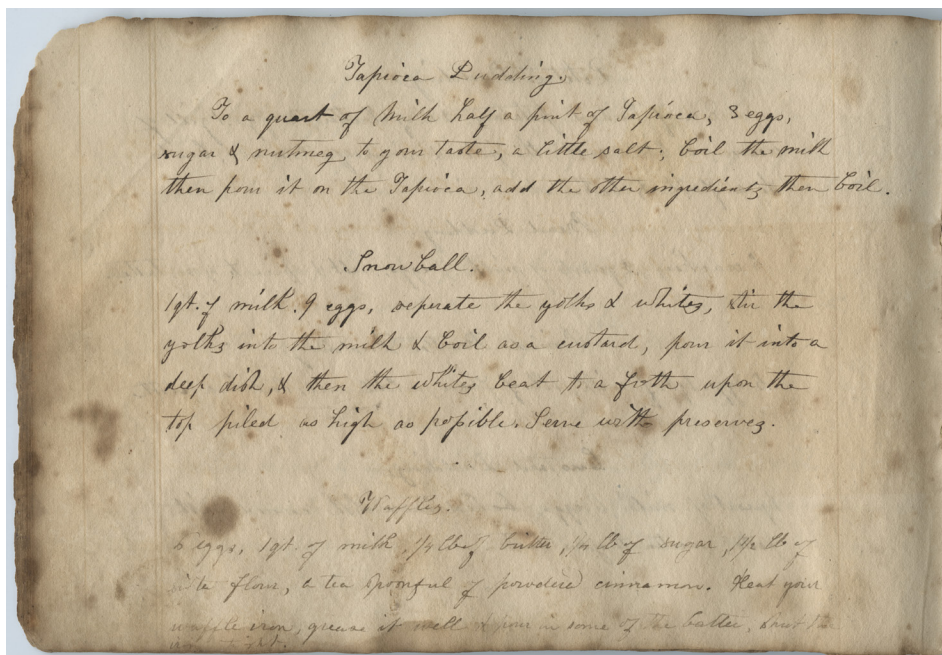 Tapioca Pudding.
To a quart of Milk half a pint of Tapioca, 3 eggs,
sugar & nutmeg to your taste, a little salt; boil the milk
then pour it on the Tapioca, add the other ingredients then boil.
Snow ball.
1 qt. of milk. 9 eggs, seperate the yolks & whites, stir the
yolks into the milk & boil as a custard, pour it into a
deep dish, & then the whites beat to a froth upon the
top piled as high as possible. Serve with preserves.
Waffles.
eggs, 1 qt. of milk, 1/4 lb of butter, 1/4 lb of sugar, 1 1/2 lb of
flour, a tea spoonful of powdered cinnamon. Heat your
waffle iron, grease it well & pour in some of the batter,